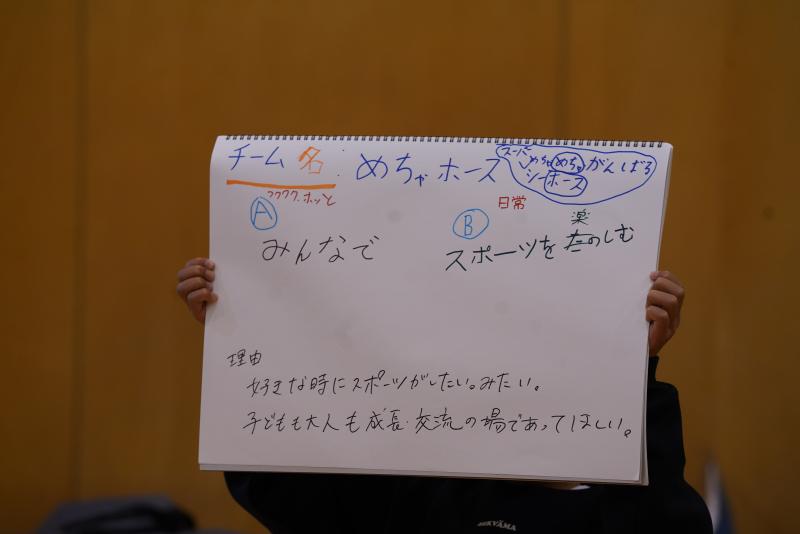 チーム名：めちゃホース
スーパー
めちゃめちゃがんばろ
シーホース
ワクワク、ホッと
日常
A
みんなで
B
楽
スポーツをたのしむ
理由
好きな時にスポーツがしたい。みたい。
子どもも大人も成長・交流の場であってほしい。